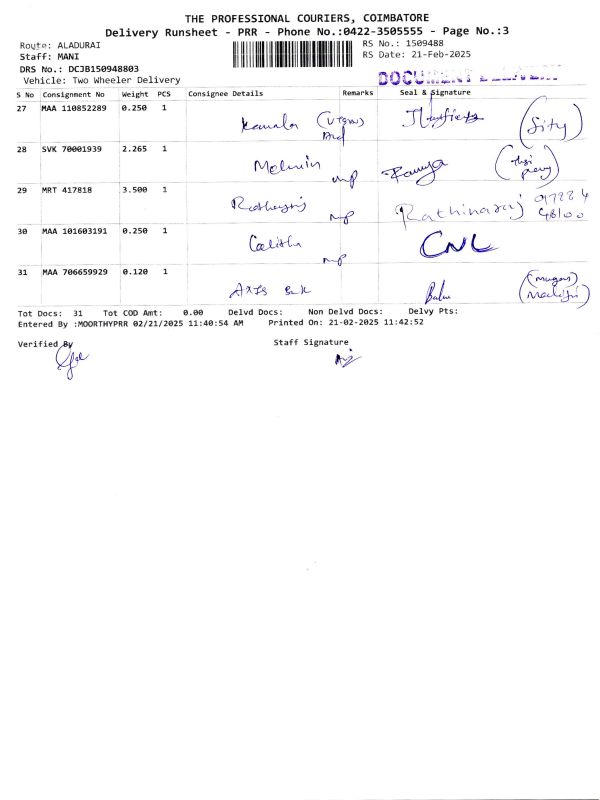 THE PROFESSIONAL COURIERS, COIMBATORE
Delivery Runsheet - PRR - Phone No.:0422-3505555 - Page No.:3
Route: ALADURAI
RS No.: 1509488
Staff: MANI
RS Date: 21-Feb-2025
DRS No.: DCJB150948803
Vehicle: Two Wheeler Delivery
DOCUMENT
S No Consignment No Weight PCS Consignee Details Remarks Seal & Signature
27 MAA 110852289 0.250 1
Kamala
(Sity)
28 SVK 70001939 2.265 1
Ramya
29 MRT 417818 3.500 1
Rathinaraj
30 MAA 101603191 0.250 1
CNL
31 MAA 706659929 0.120 1
AXIS
Tot Docs: 31 Tot COD Amt: 0.00 Delvd Docs: Non Delvd Docs: Delvy Pts:
Entered By :MOORTHYPRR 02/21/2025 11:40:54 AM Printed On: 21-02-2025 11:42:52
Verified By
Staff Signature